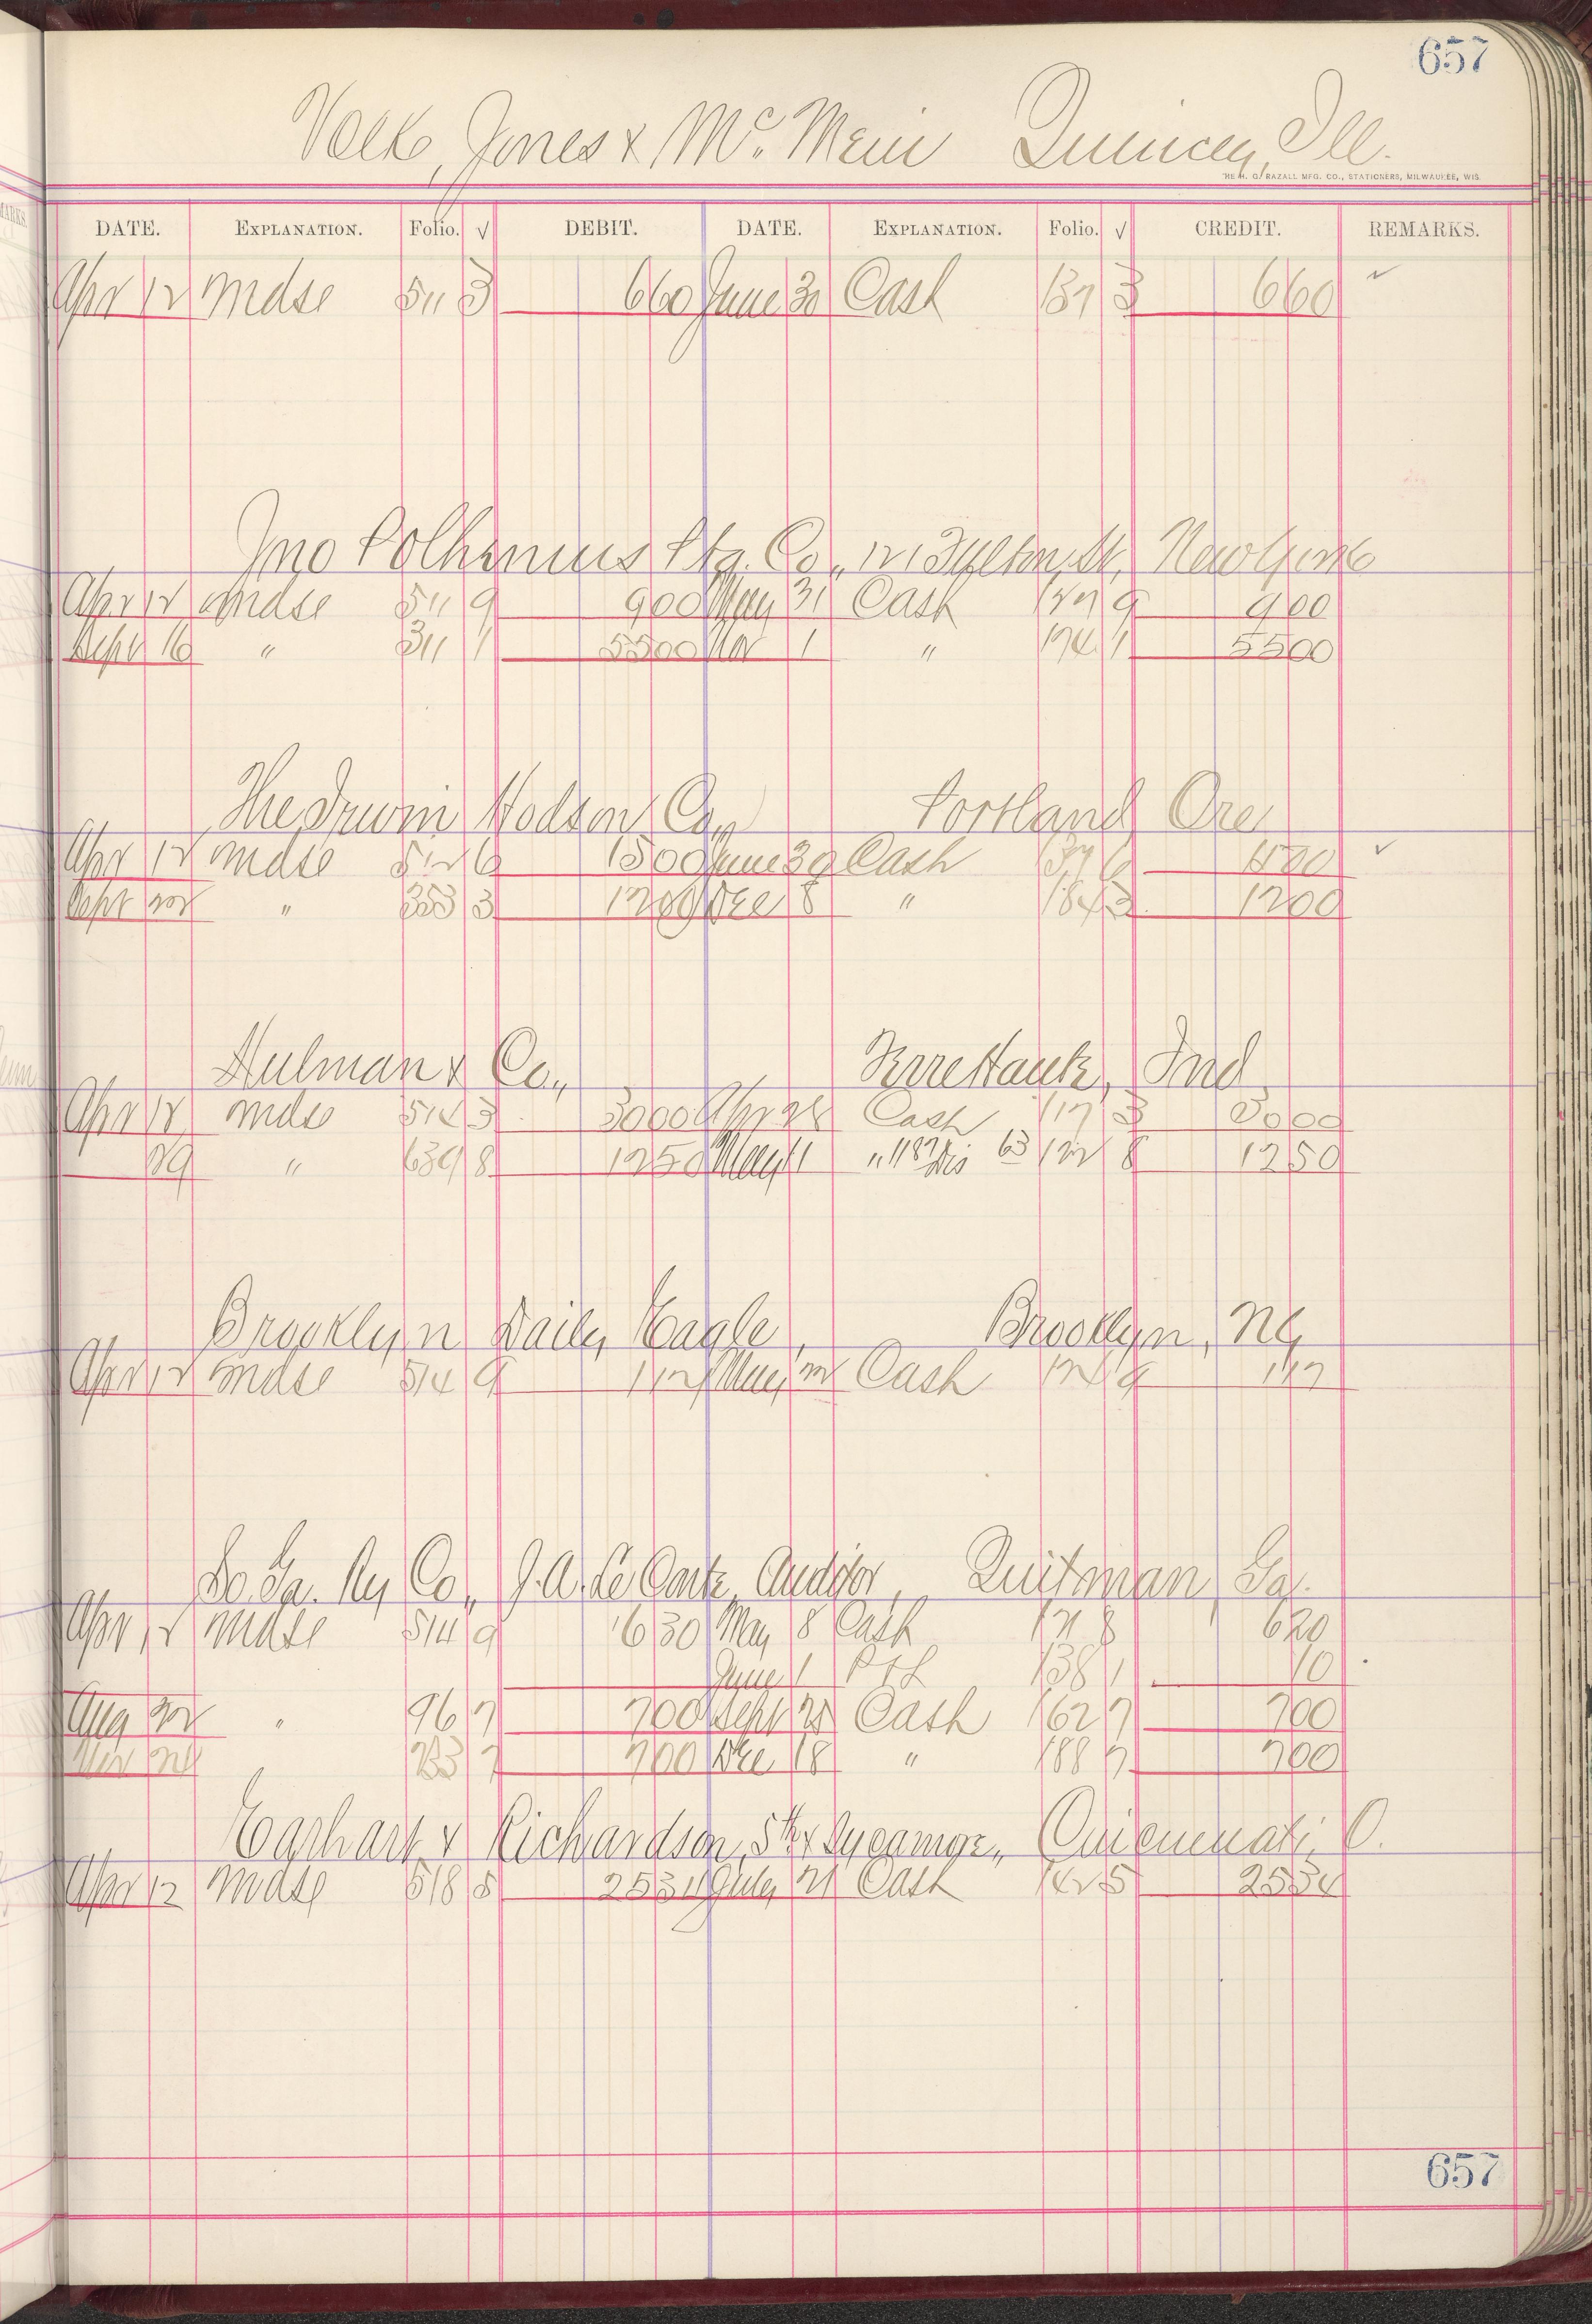 657
Volk, Jones & Mc. Mein Quincey, Ill.
THE H. G. RAZALL MFG. CO., STATIONERS, MILWAUKEE, WIS.
DATE. EXPLANATION. Folio. √ DEBIT. DATE. EXPLANATION. Folio. √ CREDIT. REMARKS.
Apr 12 Mdse 511 3 660 June 30 Cash 137 3 660 ✓
Jno Polhemus Ptg. Co., 121 Fulton, St, New York
Apr 12 Mdse 511 9 900 May 31 Cash 127 9 900
Sept 16 " 311 1 5500 Nov 1 " 174 1 5500
The Irwin Hodson Co., Portland Ore
Apr 12 Mdse 512 6 1500 June 30 Cash 137 6 ✓
Sept 22 " 353 3 1200 Dec 8 " 184 3 1200
Hulman & Co., Terre Haute, Ind
Apr 12 Mdse 514 3 3000 Apr 28 Cash 117 3 3000
29 " 639 8 1250 May 11 " 1187 Dis 63 122 8 1250
Brooklyn Daily Eagle, Brooklyn, NY
Apr 12 Mdse 514 9 112 May 12 Cash 121 9 112
So. Ga. Ry Co., J. A. Le Conte, Auditor, Quitman, Ga.
Apr 12 Mdse 514 9 630 May 8 Cash 121 8 620
June 1 P & L 138 1 10
Aug 22 " 96 7 700 Sept 25 Cash 162 7 700
Nov 21 7 700 Dec 18 " 188 7 700
Earhart & Richardson, 5th & Sycamore, Cincinnati, O.
Apr 12 Mdse 518 5 2534 July 21 Cash 142 5 2534
657